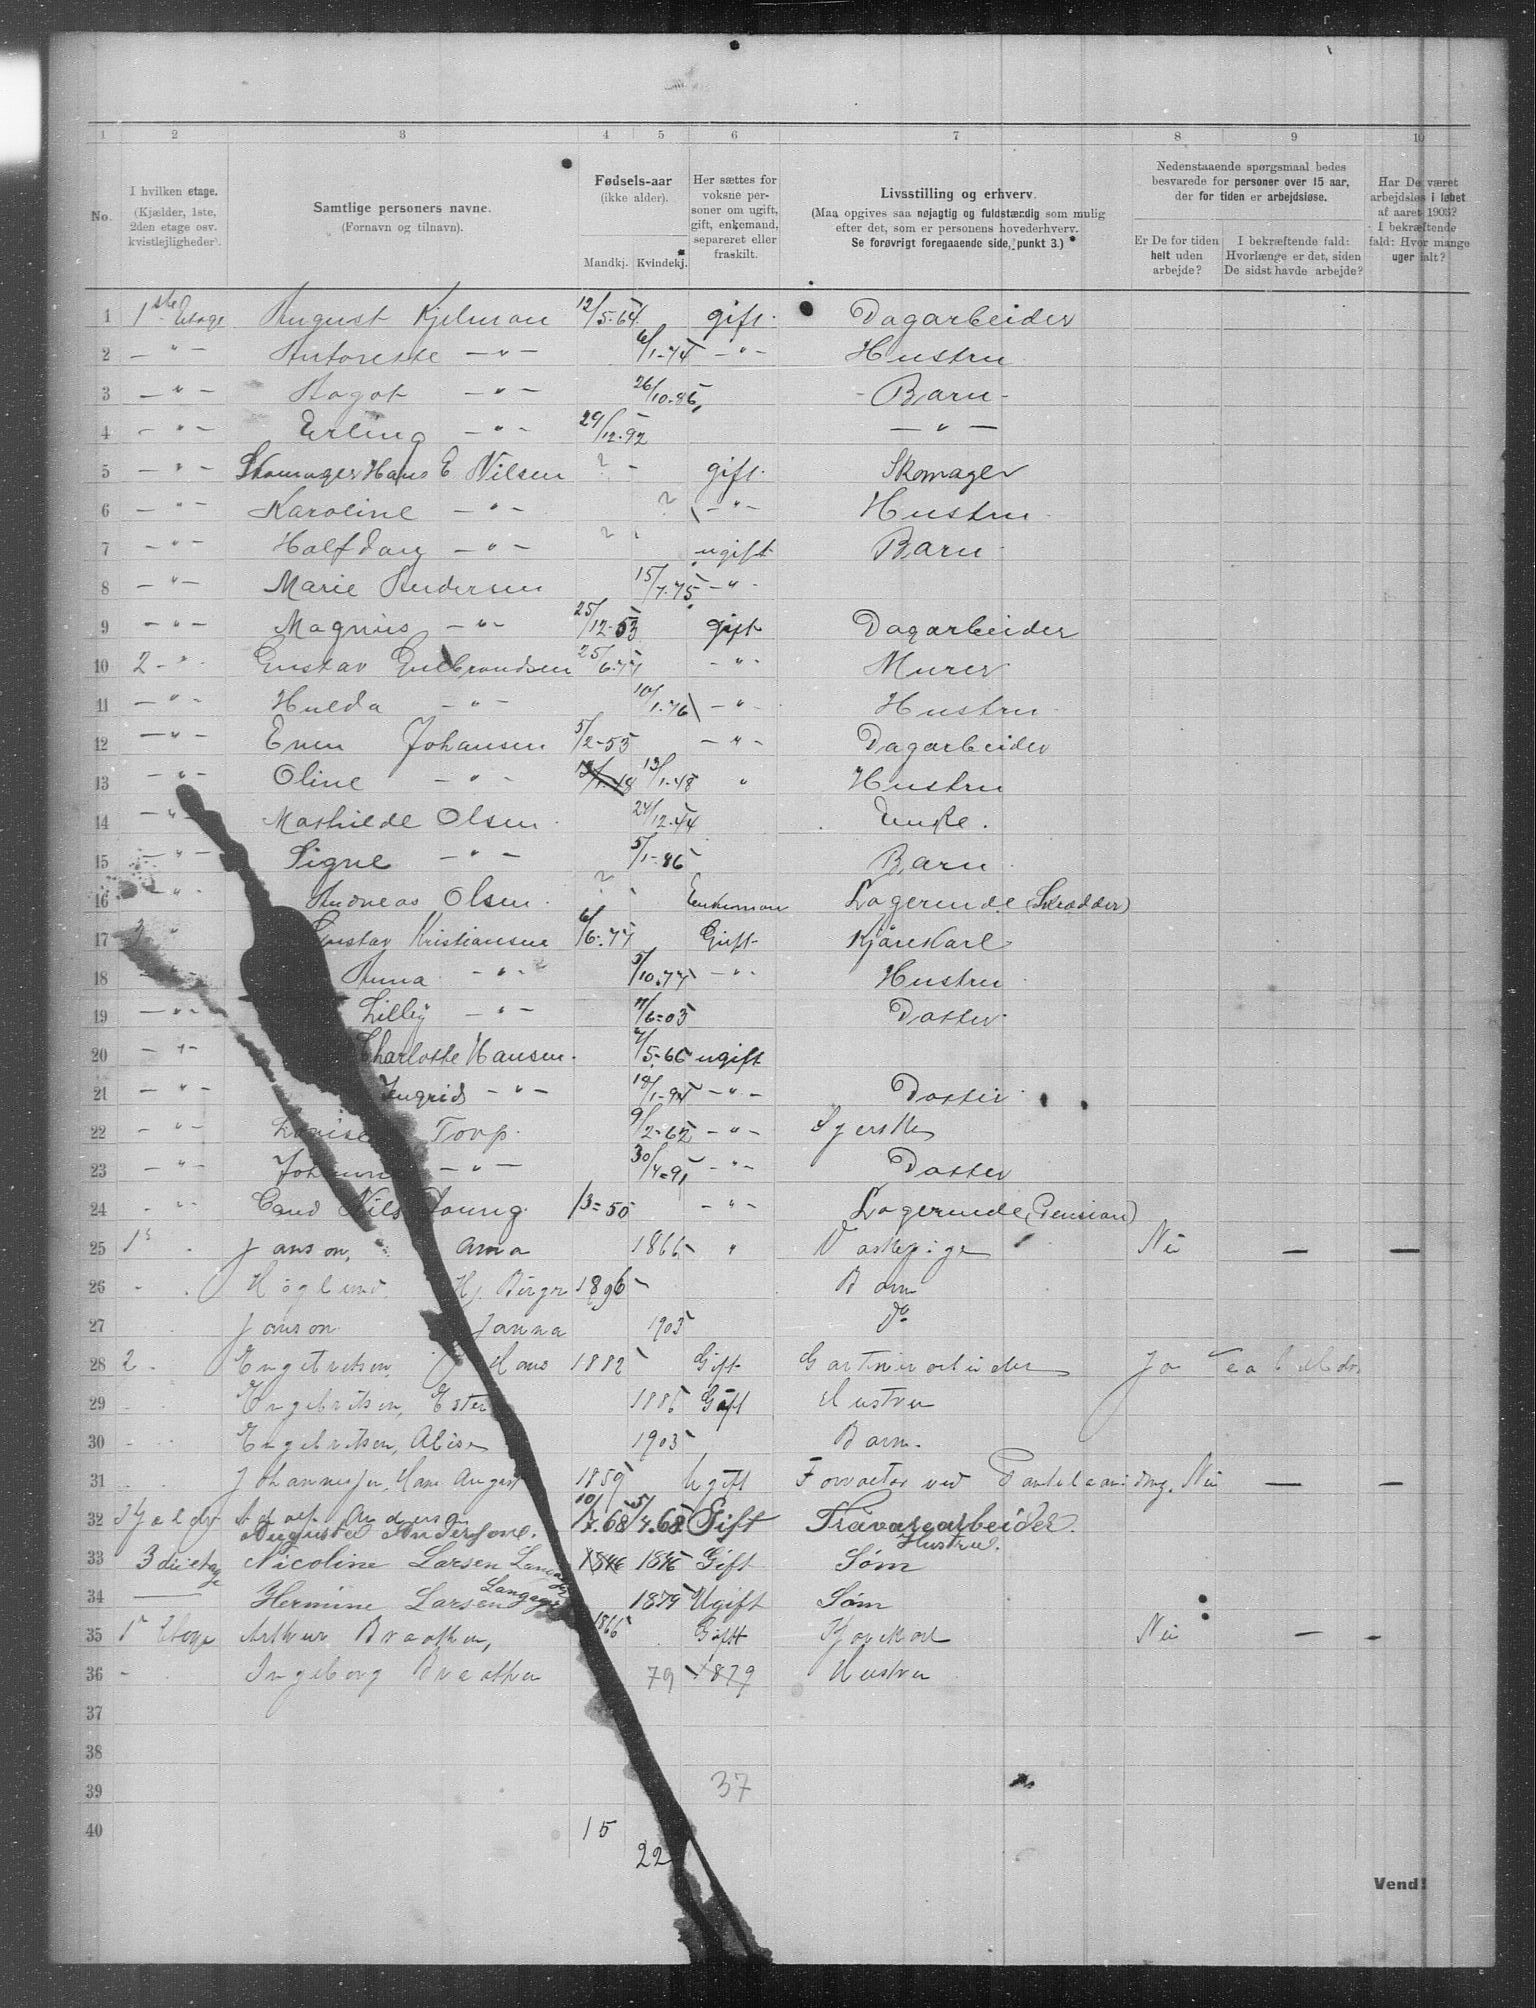 1 2 3 4 5 6 7 8 9 10
No.
I hvilken etage.
(Kjælder, 1ste,
2den etage osv.
kvistlejligheder).
Samtlige personers navne.
(Fornavn og tilnavn).
Fødsels-aar
(ikke alder).
Mandkj. Kvindekj.
Her sættes for
voksne per-
soner om ugift,
gift, enkemand,
separeret eller
fraskilt.
Livsstilling og erhverv.
(Maa opgives saa nøjagtig og fuldstændig som mulig
efter det, som er personens hovederhverv.
Se forøvrigt foregaaende side, punkt 3.)
Nedenstaaende spørgsmaal bedes
besvarede for personer over 15 aar,
der for tiden er arbejdsløse.
Er De for tiden
helt uden
arbejde?
I bekræftende fald:
Hvorlænge er det, siden
De sidst havde arbejde?
Har De været
arbejdsløs i løbet
af aaret 1903?
I bekræftende
fald: Hvor mange
uger ialt?
1 1ste Etage August Kjelman 12/5-64 gift Dagarbeider
2 — " — — " — 6/1-74 — " — Hustru
3 — " — Aagot — " — 26/10-86 Barn
4 — " — Erling — " — 29/12-92 — " —
5 — " — Skomager Hans E Nilsen ? gift Skomager
6 — " — Karoline — " — ? — " — Hustru
7 — " — Halfdan — " — ? ugift Barn
8 — " — Marie Andersen 15/7-75 — " —
9 — " — Magnus — " — 25/12-53 gift Dagarbeider
10 2 — " — Gustav Gulbrandsen 25/6-77 — " — Murer
11 — " — Hulda — " — 10/1-76 — " — Hustru
12 — " — Even Johansen 5/2-53 — " — Dagarbeider
13 — " — Oline — " — 13/1-48 13/1-48 " Hustru
14 — " — Mathilde Olsen 24/12-44 Enke.
15 — " — Signe — " — 5/1-86 Barn
16 — " — Andreas Olsen ? Enkeman Logerende (Skrædder)
17 3 " Gustav Kristiansen 6/6-77 Gift Kjørekarl
18 Anna — " — 5/10-77 — " — Hustru
19 — " — Lilly — " — 7/6-03 Datter
20 — " — Charlotte Hansen 7/5-66 ugift
21 — " — Ingrid — " — 18/1-94 — " — Datter
22 — " — Lovise Torp 9/2-62 — " — Syerske
23 — " — — " — 30/4-91 — " — Datter
24 — " — Cand Nils Young /3-50 — " — Logerende (Pension)
25 1s Janson, Anna 1866 " Vaskepige Nei — —
26 Høglund, Hj. Birger 1896 Barn
27 Janson Janna 1903 Do
28 2 Engebretsen, Hans 1882 Gift Gartnerarbeider Ja ca 6 Mdr.
29 Engebretsen, Ester 1886 Gift Hustru
30 Engebretsen, Alise 1903 Barn.
31 Johannesen, Hans August 1859 Ugift Forvalter ved Nei — —
32 Kjelder Adolf Anderson 10/7.68 5/4.68 Gift Trævarearbeider.
Augusta Andersone. Hustru.
33 3die etage Nicoline Larsen 1846 1846 Gift Søm
34 — Hermine Larsen Langager 1879 Ugift Søm
35 1 Etage Arthur Braathen, 1866 Gift Kjørekarl Nei — —
36 - Ingeborg Braathen 79 1879 Hustru
37
38
39 37
40 15
22
Vend!